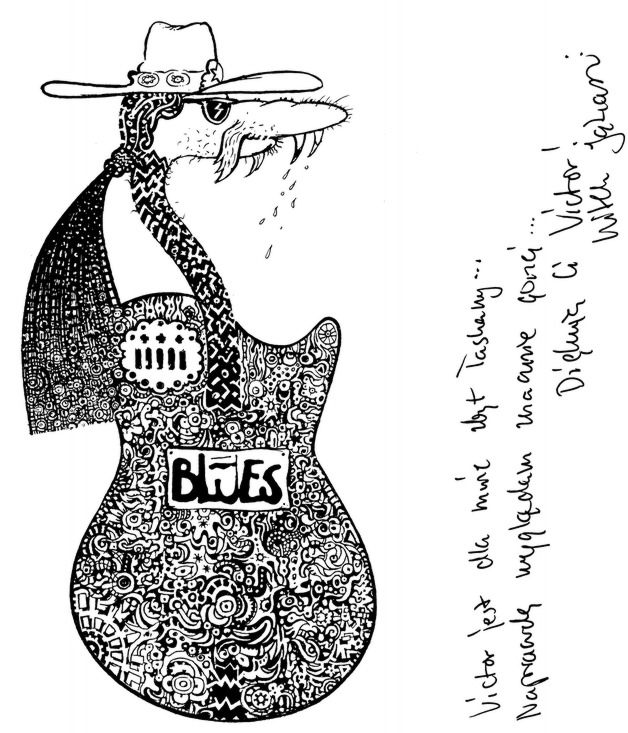 BLUES
Victor jest dla mnie zbyt łaskawy...
Naprawdę wyglądam znacznie gorzej...
Dziękuję Ci Victor!